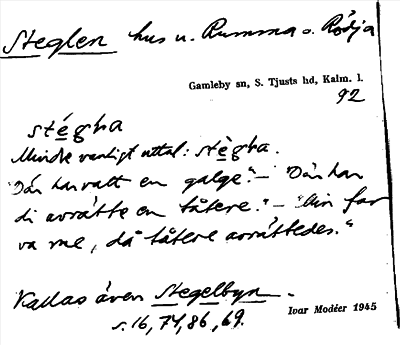 Steglen hus u. Rumma o. Rödja
Gamleby sn, S. Tjusts hd, Kalm. l.
92
stégḷna
Mindre vanligt uttal: stègḷna.
"Där har vatt en galge." – "Där har
di avrätte en tåtere." – "Min far
va me, då tåtere avrättedes."
Kallas även Stegelbyn.
s. 16, 74, 86, 69.
Ivar Modéer 1945